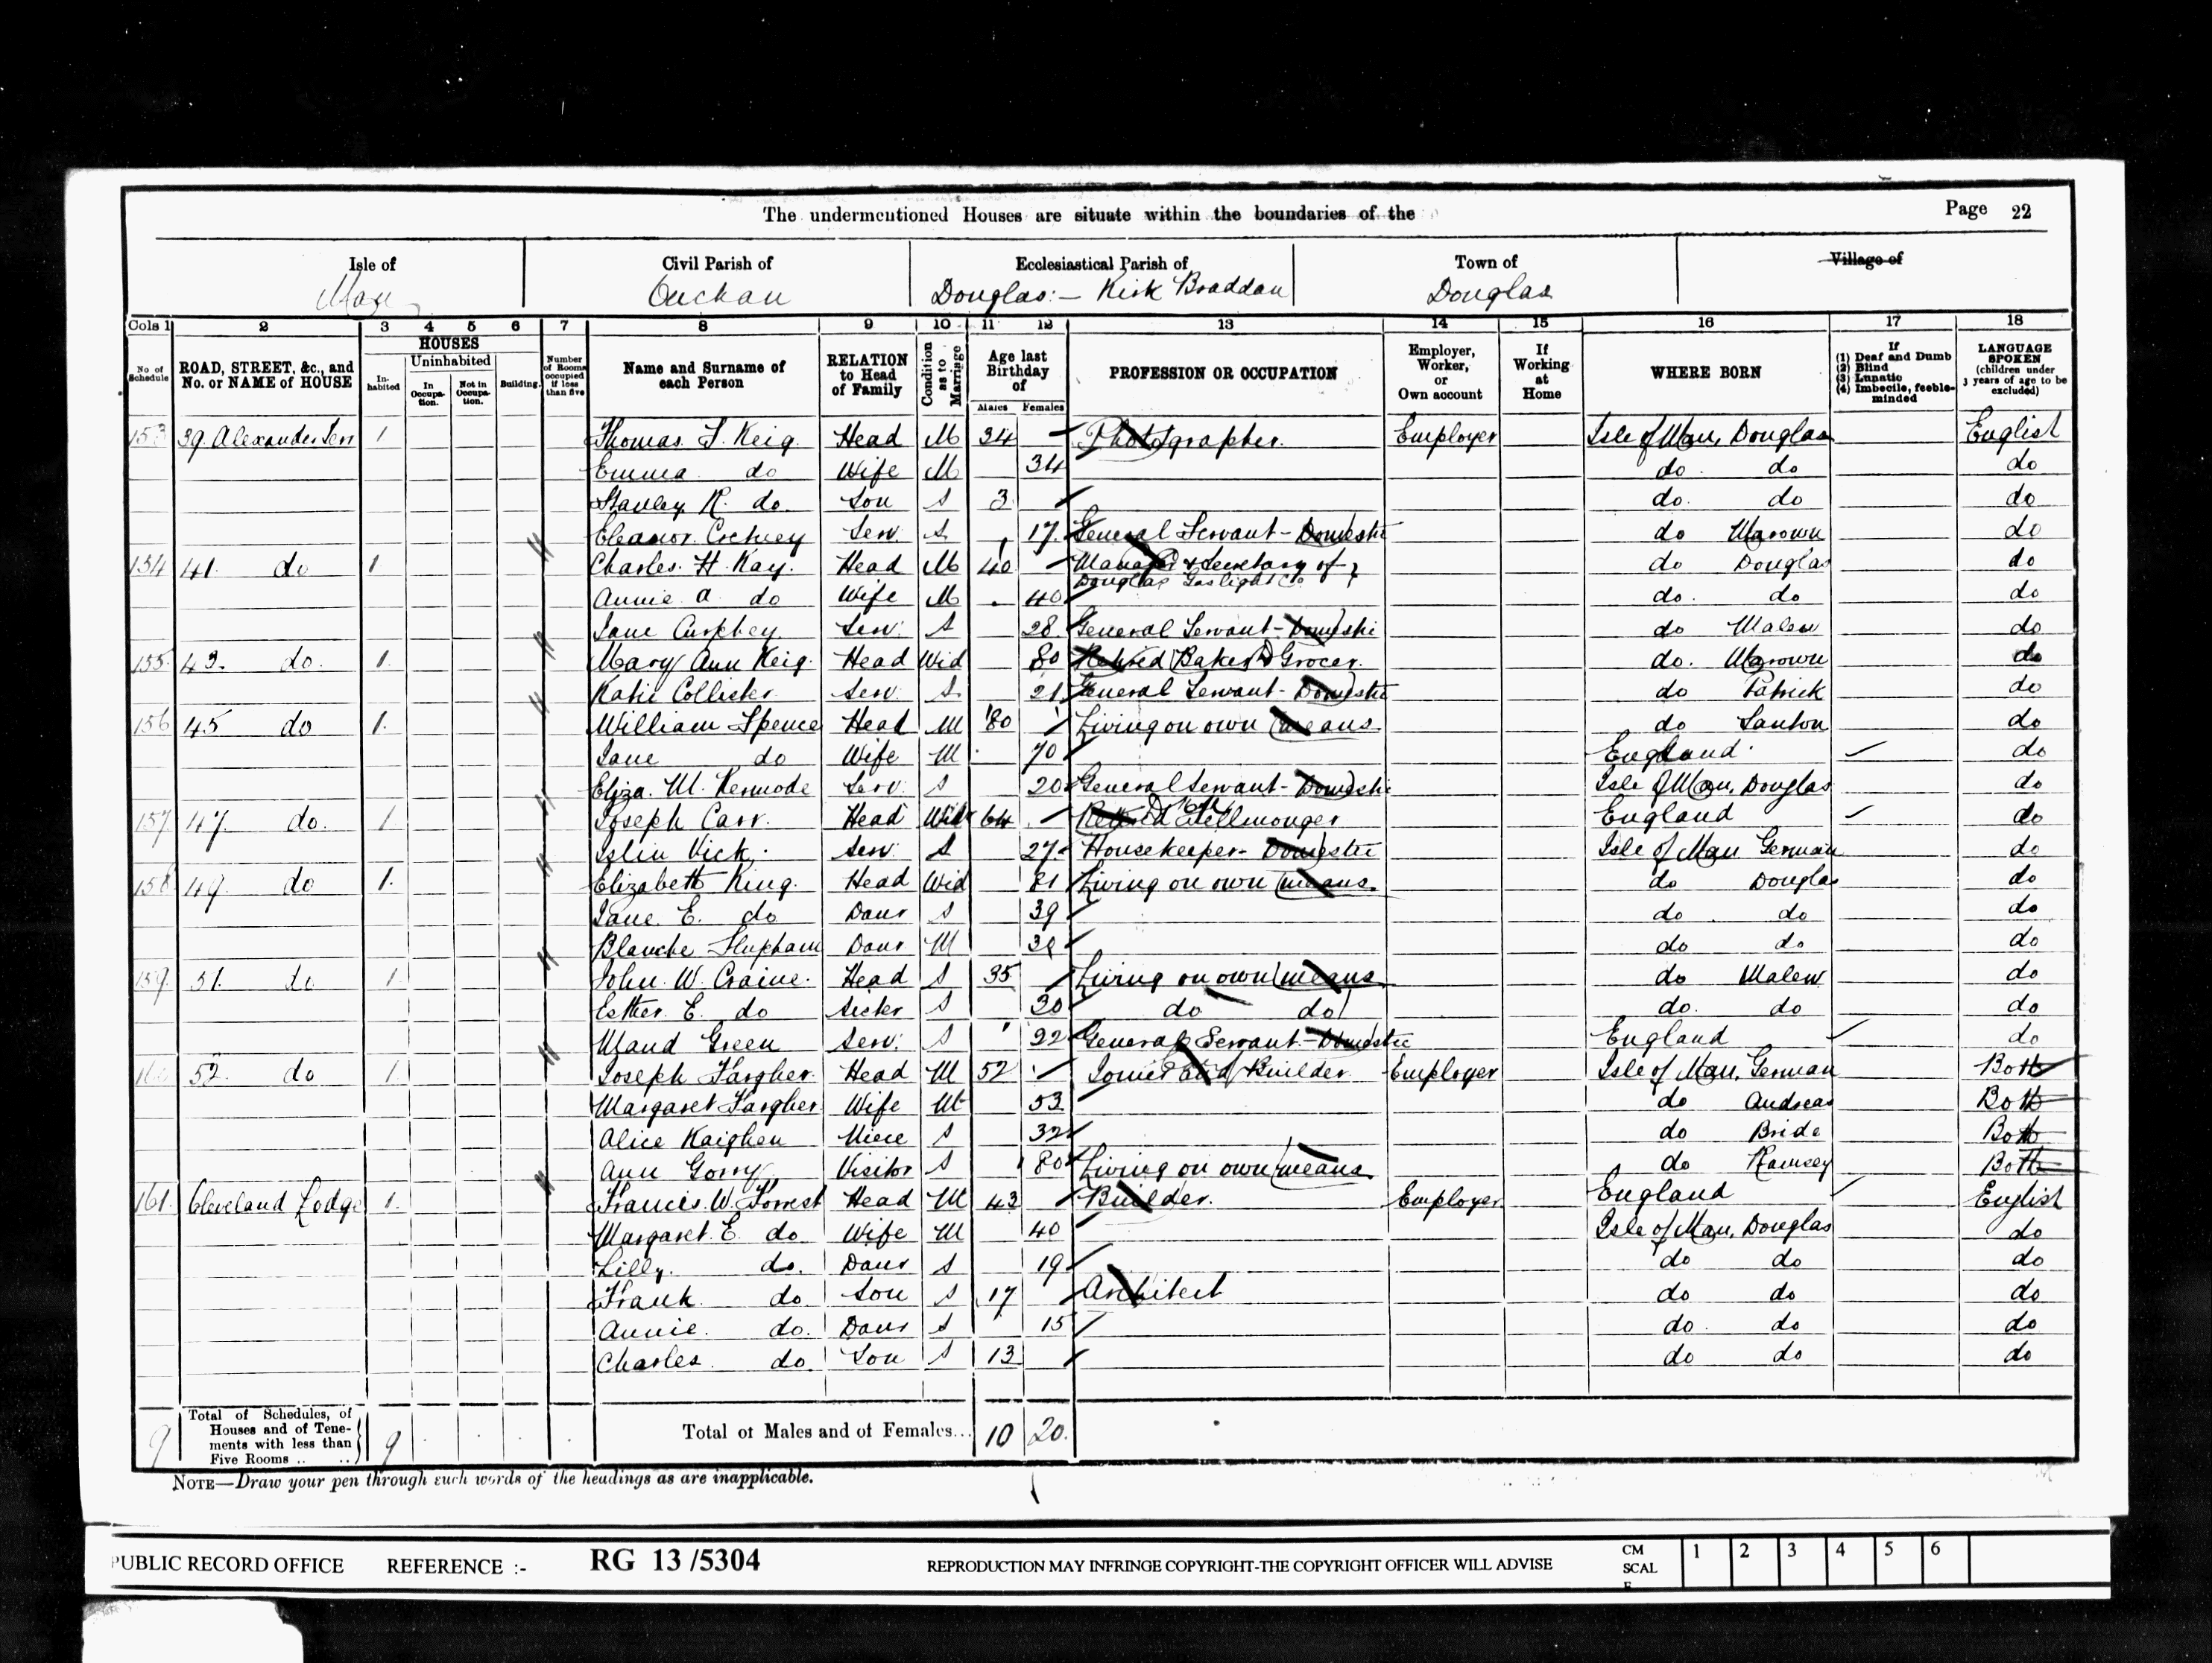 The undermentioned Houses are situate within the boundaries of the
Page 22
Isle of Man
Civil Parish of Onchan
Ecclesiastical Parish of Douglas:- Kirk Braddan
Town of Douglas
Village of
Cols 1 2 3 4 5 6 7 8 9 10 11 12 13 14 15 16 17 18
No of Schedule
ROAD, STREET, &c., and No. or NAME of HOUSE
HOUSES
In-habited
Uninhabited
In Occupa-tion.
Not in Occupa-tion.
Building.
Number of Rooms occupied if less than five
Name and Surname of each Person
RELATION to Head of Family
Condition as to Marriage
Age last Birthday of
Males Females
PROFESSION OR OCCUPATION
Employer, Worker, or Own account
If Working at Home
WHERE BORN
If (1) Deaf and Dumb (2) Blind (3) Lunatic (4) Imbecile, feeble-minded
LANGUAGE SPOKEN (children under 3 years of age to be excluded)
153 39 Alexander Terr 1 Thomas Keig Head M 34 Photographer. Employer Isle of Man, Douglas English
Emma do Wife M 34 do do do
Stanley R. do Son S 3 do do do
Eleanor Serv. S 17 General Servant - Domestic do Marown do
154 41 do 1 Charles H. Kay. Head M 40 Manager & Secretary of Douglas Gaslight Co. do Douglas do
Annie A do Wife M 40 do do do
Jane Curphey Serv. S 28 General Servant - Domestic do Malew do
155 43. do. 1 Mary Ann Keig. Head Wid 80 Retired Baker & Grocer. do. Marown do
Katie Collister Serv. S 21 General Servant - Domestic do Patrick do
156 45 do 1. William Spence Head M 80 Living on own means do Santon do
Jane do Wife M 70 England do
Eliza. M. Kermode Serv. S 20 General Servant - Domestic Isle of Man, Douglas do
157 47. do. 1 Joseph Carr. Head Wid 64 Retired Fellmonger England do
Vick Serv S 27 Housekeeper - Domestic Isle of Man German do
158 49. do 1. Elizabeth King. Head Wid 81 Living on own means. do Douglas do
Jane E. do Daur S 39 do do do
Blanche Daur M do do do
159 51. do 1 John. W. Craine. Head S 35 Living on own means do Malew do
Esther E. do Sister S 30 do do do. do do
Maud Green Serv. S 22 General Servant - Domestic England do
160 52 do 1 Joseph Fargher Head M 52 Joiner and Builder Employer Isle of Man, German Both
Margaret Fargher Wife M 53 do Andreas Both
Alice Kaighen Niece S 32 do Bride Both
Ann Gorry Visitor S 80 Living on own means do Ramsey Both
161. Cleveland Lodge 1. Francis. W. Forrest Head M 43 Builder. Employer England English
Margaret. E. do Wife M 40 Isle of Man, Douglas do
Lilly. do. Daur S 19 do do do
Frank do Son S 17 Architect do do do
Annie. do. Daur S 15 do do do
Charles do. Son S 13 do do do
9 Total of Schedules, of Houses and of Tenements with less than Five Rooms .. 9 Total of Males and of Females... 10 20.
NOTE—Draw your pen through such words of the headings as are inapplicable.
PUBLIC RECORD OFFICE REFERENCE :- RG 13 /5304 REPRODUCTION MAY INFRINGE COPYRIGHT-THE COPYRIGHT OFFICER WILL ADVISE CM SCALE 1 2 3 4 5 6